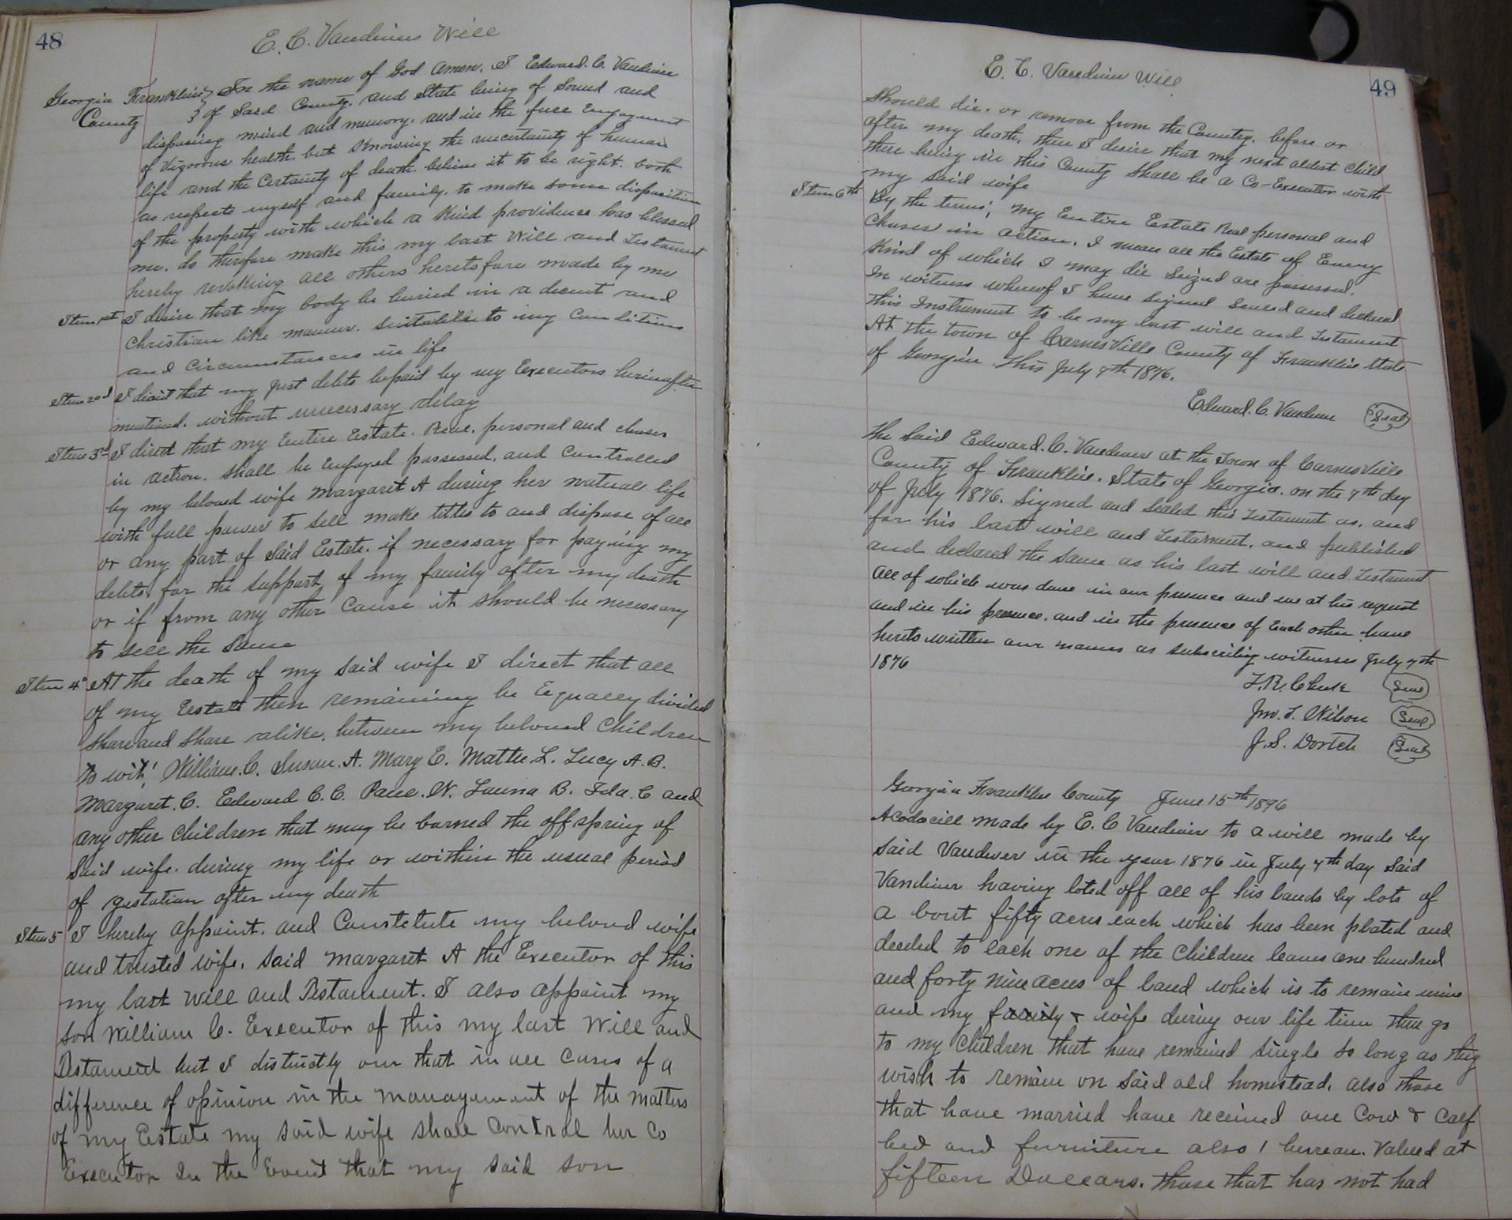 48
E. C. Vandiver Will
Georgia Franklin } In the name of God Amen. I Edward. C. Vandiver
County } of Said County. and State being of Sound and
disposing mind and memory. and in the full Enjoyment
of vigorous health but Knowing the uncertainty of human
life and the Certainty of death believe it to be right. both
as respects myself and family. to make some disposition
of the property with which a Kind providence has blessed
me. do therefore make this my last Will and Testament
hereby revoking all others heretofore made by me
Item 1st I desire that my body be buried in a decent and
Christian like manner. Suitable to my Conditions
and Circumstances in life
Item 2nd I direct that my just debts be paid by my Executors hereinafter
mentioned. without unnecessary delay
Item 3d I direct that my Entire Estate. Real. personal and choses
in action. Shall be enjoyed possessed. and Controlled
by my beloved wife Margaret A during her natural life
with full power to sell make titles to and dispose of all
or any part of Said Estate. if necessary for paying my
debts. for the Support of my family after my death
or if from any other Cause it should be necessary
to sell the same
Item 4th At the death of my Said wife I direct that all
of my Estate then remaining be Equally divided
Share and Share alike. between my beloved Children
to wit! William. C. Susan. A. Mary E. Mattie L. Lucy A. B.
Margaret. C. Edward C. C. W. B. Ida. C and
any other children that may be borned the offspring of
Said wife. during my life or within the usual period
of gestation after my death
Item 5 I hereby appoint. and Constetute my beloved wife
and trusted wife. Said Margaret A the Executor of this
my last Will and Testament. I also appoint my
son William C. Executor of this my last Will and
Testament but I distinctly that in all Cases of a
difference of opinion in the management of the matters
of my Estate my said wife shall Control her Co
Executor In the Event that my said son
49
E. C. Vandiver Will
Should die. or remove from the Country. before or
after my death. then I desire that my next oldest Child
then being in this County Shall be a Co-Executor with
my Said wife
Item 6th By the terms; my Entire Estate Real personal and
Choses in action. I mean all the Estate of Every
Kind of which I may die Seized are possessed.
In witness whereof I have Signed Sealed and declared
this Instrument to be my last will and Testament
At the town of CarnesVille County of Franklin State
of Georgia This July 7th 1876.
Edward. C. Vandiver (Seal)
The Said Edward. C. Vandiver at the Town of CarnesVille
County of Franklin. State of Georgia. on the 7th day
of July 1876. Signed and Sealed this Testament as. and
for his last will and Testament. and published
and declared the same as his last will and Testament
All of which was done in our presence and we at his request
and in his presence. and in the presence of Each other have
hereto written our names as subscribing witnesses July 7th
1876
(Seal)
Jno. T. Wilson (Seal)
J. S. Dortch (Seal)
Georgia Franklin County June 15th 1896
A Codocill made by E. C Vandiver to a will made by
Said Vandiver in the year 1876 in July 7th day Said
Vandiver having loted off all of his lands by lots of
a bout fifty acres each which has been plated and
deeded to each one of the Children leaves one hundred
and forty Nine acres of land which is to remain mine
and my family & wife during our life time then go
to my children that have remained single so long as they
wish to remain on said old homestead. also those
that have married have received one Cow & Calf
bed and furniture also 1 bureau. Valued at
fifteen Dollars. those that has not had